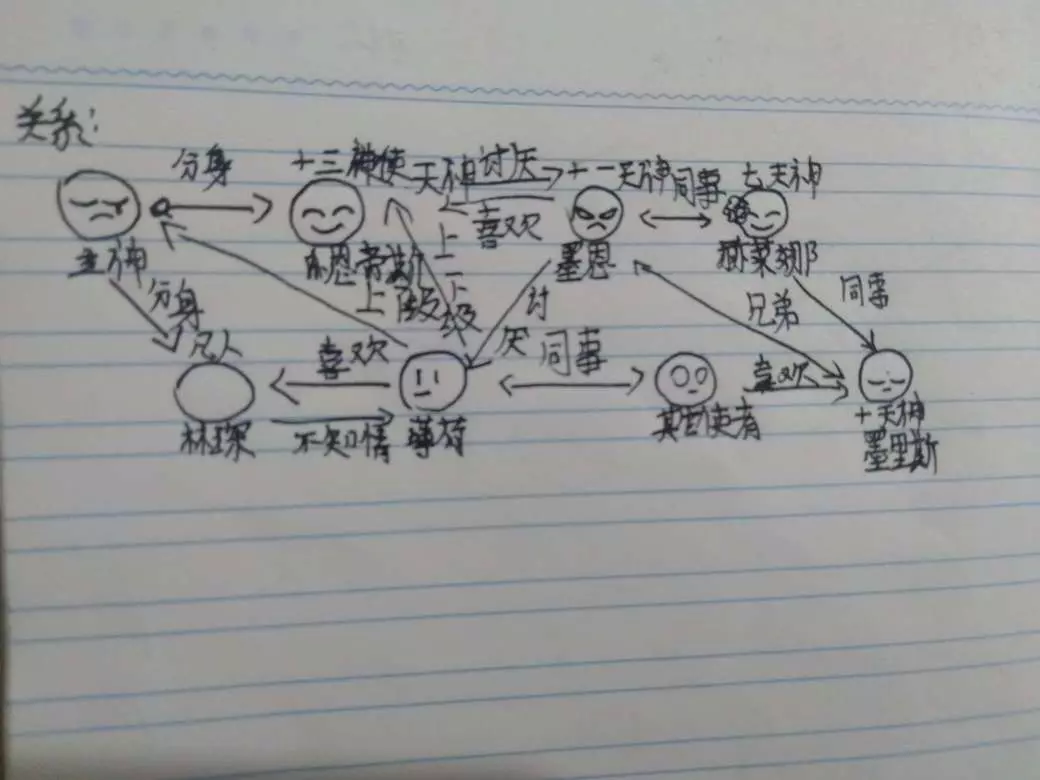 关系：
分身 十三神使 天神 讨厌 十一天神 同事 七天神
喜欢
主神 恩 斯 墨恩 莱 那
上下级 上下级 讨厌 兄弟 同事
分身
凡人 喜欢 同事 喜欢
林琛 不知情 薄荷 其它使者 十天神
墨里斯